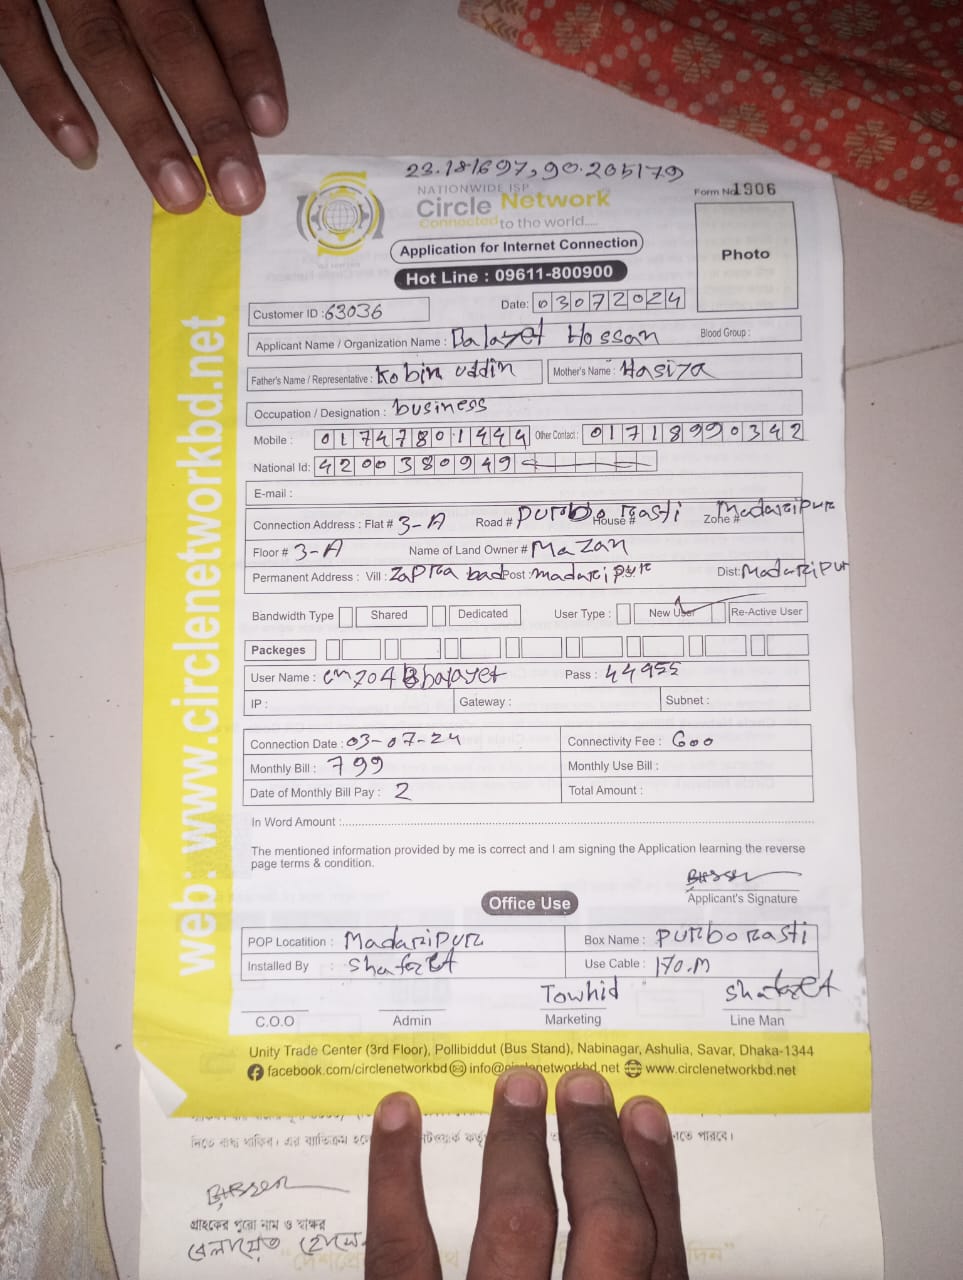 23.181697, 90.205179
NATIONWIDE ISP
Circle Network
Connected to the world.....
Form No 1906
Application for Internet Connection
Photo
Hot Line : 09611-800900
Customer ID : 63036
Date: 03072024
Applicant Name / Organization Name : Balayet Hossan
Blood Group :
Father's Name / Representative : Kobir uddin
Mother's Name : Hasiza
Occupation / Designation : business
Mobile : 01747801444
Other Contact : 01718990342
National Id: 4200380949
E-mail :
Connection Address : Flat # 3-A Road # Purbo rasti House # Zone # Madaripur
Floor # 3-A Name of Land Owner # Mazan
Permanent Address : Vill : Zapra bad Post : madaripur Dist: Madaripur
Bandwidth Type Shared Dedicated User Type : New User Re-Active User
Packeges
User Name : Pass : 44955
IP : Gateway : Subnet :
Connection Date : 03-07-24 Connectivity Fee : 600
Monthly Bill : 799 Monthly Use Bill :
Date of Monthly Bill Pay : 2 Total Amount :
In Word Amount :
The mentioned information provided by me is correct and I am signing the Application learning the reverse
page terms & condition.
Applicant's Signature
Office Use
POP Locatition : Madaripur Box Name : Purbo rasti
Installed By : Shafazet Use Cable : 170.M
Towhid Shafazet
C.O.O Admin Marketing Line Man
Unity Trade Center (3rd Floor), Pollibiddut (Bus Stand), Nabinagar, Ashulia, Savar, Dhaka-1344
facebook.com/circlenetworkbd info@circlenetworkbd.net www.circlenetworkbd.net
web: www.circlenetworkbd.net
দিতে বাধ্য থাকিব। এর ব্যতিক্রম হলে
পারবে।
গ্রাহকের পুরো নাম ও স্বাক্ষর
বেলায়েত হোসেন